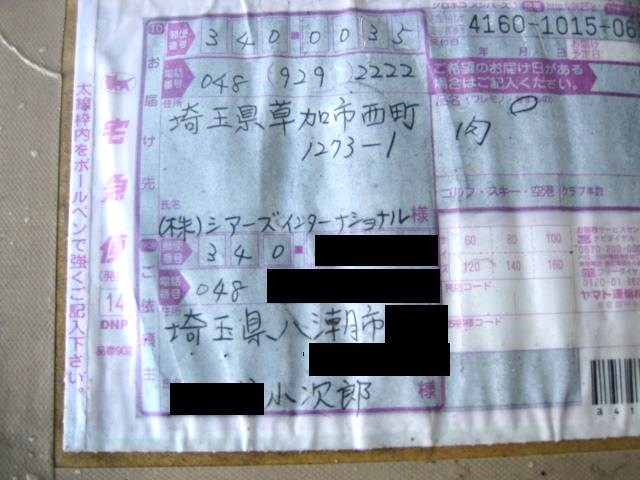 4160-1015-06
TO 郵便番号 340-0035
お届け先
電話番号 048 (929) 2222
住所
埼玉県草加市西町
1273-1
氏名
(株)シアーズインターナショナル 様
郵便番号 340-
ご依頼主
電話番号 048
住所
埼玉県八潮市
小次郎 様
太線枠内をボールペンで強くご記入下さい。
宅急便
14
DNP
品番902
年 月 日
お届け予定日
ご希望のお届け日がある
場合はご記入ください。
肉
ゴルフ・スキー・空港 クラブ本数
60 80 100
120 140 160
ヤマト運輸